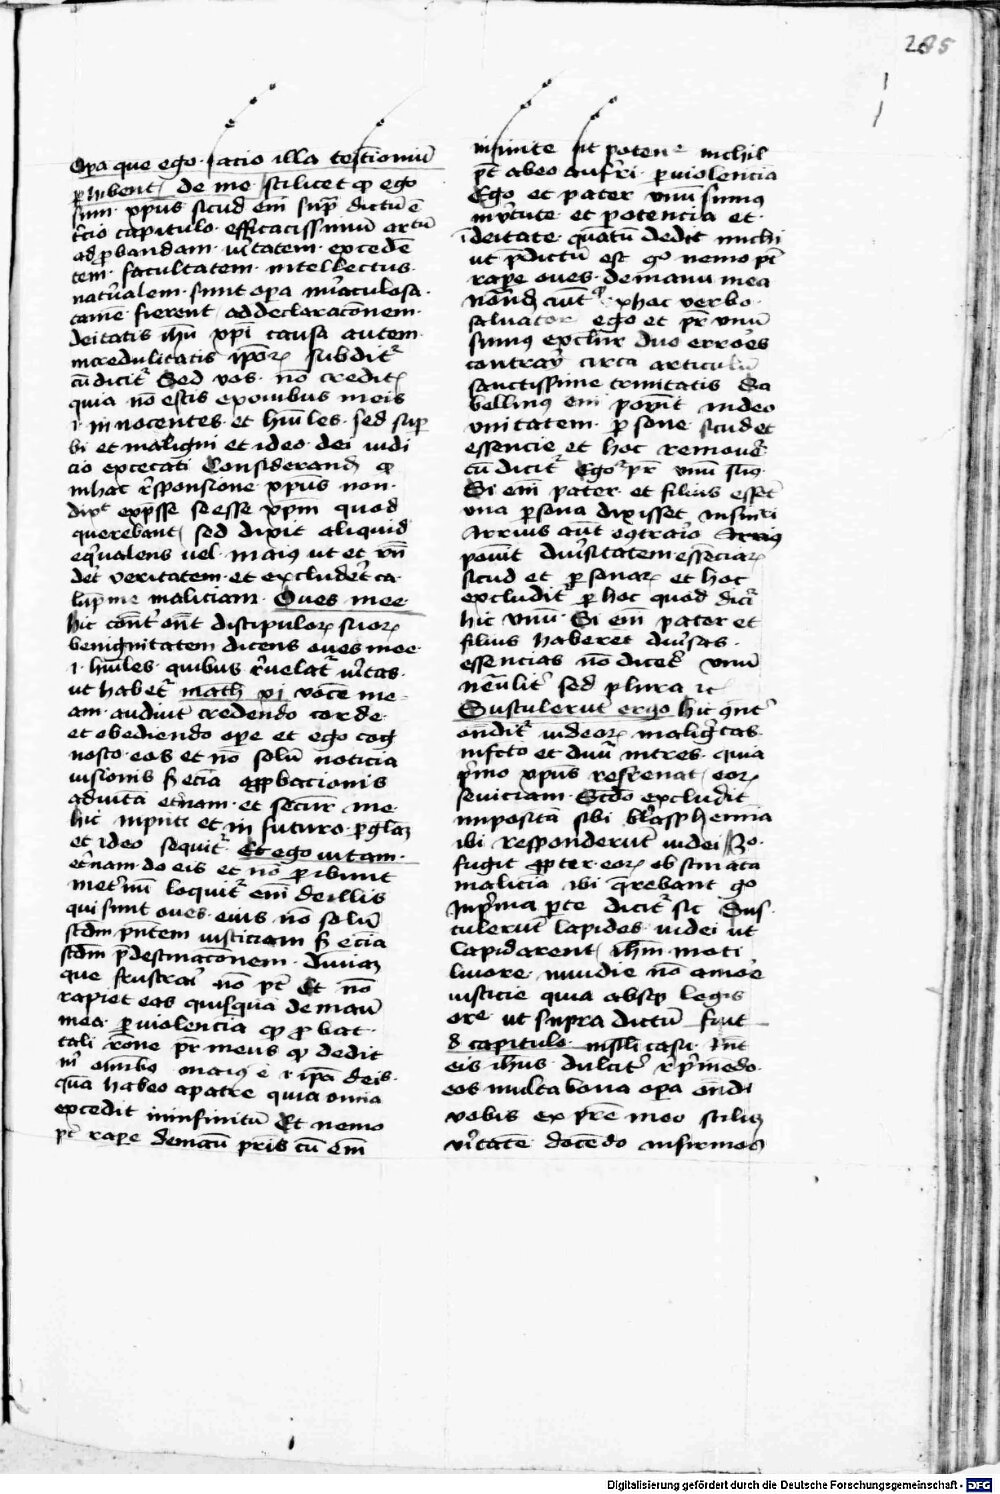 285
Opa que ego facio illa testioniū
ꝑhibent de me scilicet ꝙ ego
sum xp̄us sicud em̄ supͣ dictū ē
t̄cio capitulo efficacissimū
ad ꝓbandam vītatem exceden̄
tem facultatem intellectus
natͣalem sunt opa mͥaculosa
tamē fierent ad declaracōnem
deitatis ihū xp̄i causa autem
incredulitatis ip̄oꝝ subditͬ
cū dicitͬ Sed vos nō creditꝭ
quia nō estis ex ouibus meis
.i. innocentes et hūiles sed suꝑ
bi et maligni et ideo dei iudi
cio excecati Considerandū ꝙ
in hac rn̄sponsione xp̄us non
dixᵗ exp̄sse se esse xp̄m quod
querebant sed dixit aliquid
eqͥualens uel maius ut et rn̄
det̄ veritatem et excludet̄ ca
lūp̄me maliciam Oues mee
hic discipuloꝝ suoꝝ
benignitatem dicens oues mee
.i. hūiles quibus rēuelatͬ vītas
ut habetͬ math xi vocē me
am audiūt credendo corde
et obediendo oꝑe et ego cog
nosco eas et nō solū noticia
visionis sꝫ eciā apꝓbacionis
ad vitā et̄nam et secūtͬ me
hic in pn̄ti et in futuro ꝑ gl̄aꝫ
et ideo sequitͬ Et ego vitam
et̄nam do eis et nō ꝑibunt
in et̄nū loquitͬ em̄ de illis
qui sunt oues eius nō solū
scd̄m pn̄tem iusticiam sꝫ eciā
scd̄m p̄destinacōnem diuinaꝫ
que frustrai nō pt̄ Et nō
rapiet eas quisquā de manū
mea ꝑ violencia ꝙ ꝓbat
tali rōne pr̄ meus ꝙ dedit
m̄ om̄ibꝰ maius ē .i. ip̄a deis
quā habeo a patre quia omīa
excedit in infinitū Et nemo
pt̄ rapē de manū pr̄is cū em̄
infinite sit potenᵉ nichil
pt̄ ab eo aufri ꝑ violencia
Ego et pater vnū sumꝰ
in vͥtute et potencia et
ī deitate quātū dedit michi
ut p̄dictū est gͦ nemo pt̄
rapē oues de manu mea
ex hoc verbo
saluatoris ego et pr̄ vnū
sumꝰ excludr̄ duo erroes
contrarij circa articulū
sanctissime trinitatis Sa
bellinꝰ em̄ poꝛit in deo
vnitatem ꝑsone sicud et
essencie et hoc remouet̄
cū dicitͬ Ego ⁊ pr̄ vnū sumꝰ
Si em̄ pater et filius essēt
vna ꝑsona dixisset
Arrius aūt e contraio Arrius
posuit diuͥsitatem essenciaꝝ
sicud et ꝑsonaꝝ et hoc
excluditͬ ꝑ hoc quod dicitͬ
hic vnū Si em̄ pater et
filius haberēt diuͥsas
essencias nō dicet̄ vnū
neūlit̄ sed plura ⁊c
Sustulerūt ergo hic
ondītͬ iudeoꝝ malignͥtas
quia
pͥmo xp̄us refrenat eoꝝ
seuiciam Scd̄o excludit
impositā sibi blasphemiā
ibi responderūt iudei
fugit ꝓpter eoꝝ obstinatā
maliciā ibi qͣrebant gͦ
In pͥma ꝑte dicitͬ sic Sus
tulerūt lapides iudei ut
lapidarent ihm̄ moti
liuore inuidie nō amoē
iusticie quia absqꝫ legis
oꝛe ut supra dictū fuit
8 capitulo in sili casu
eis ihūs dulcit̄ rͥp̄mēdo
eos multa bona opa ōndi
vobis ex prē meo scilicꝫ
vͥtatē docēdo infirmos